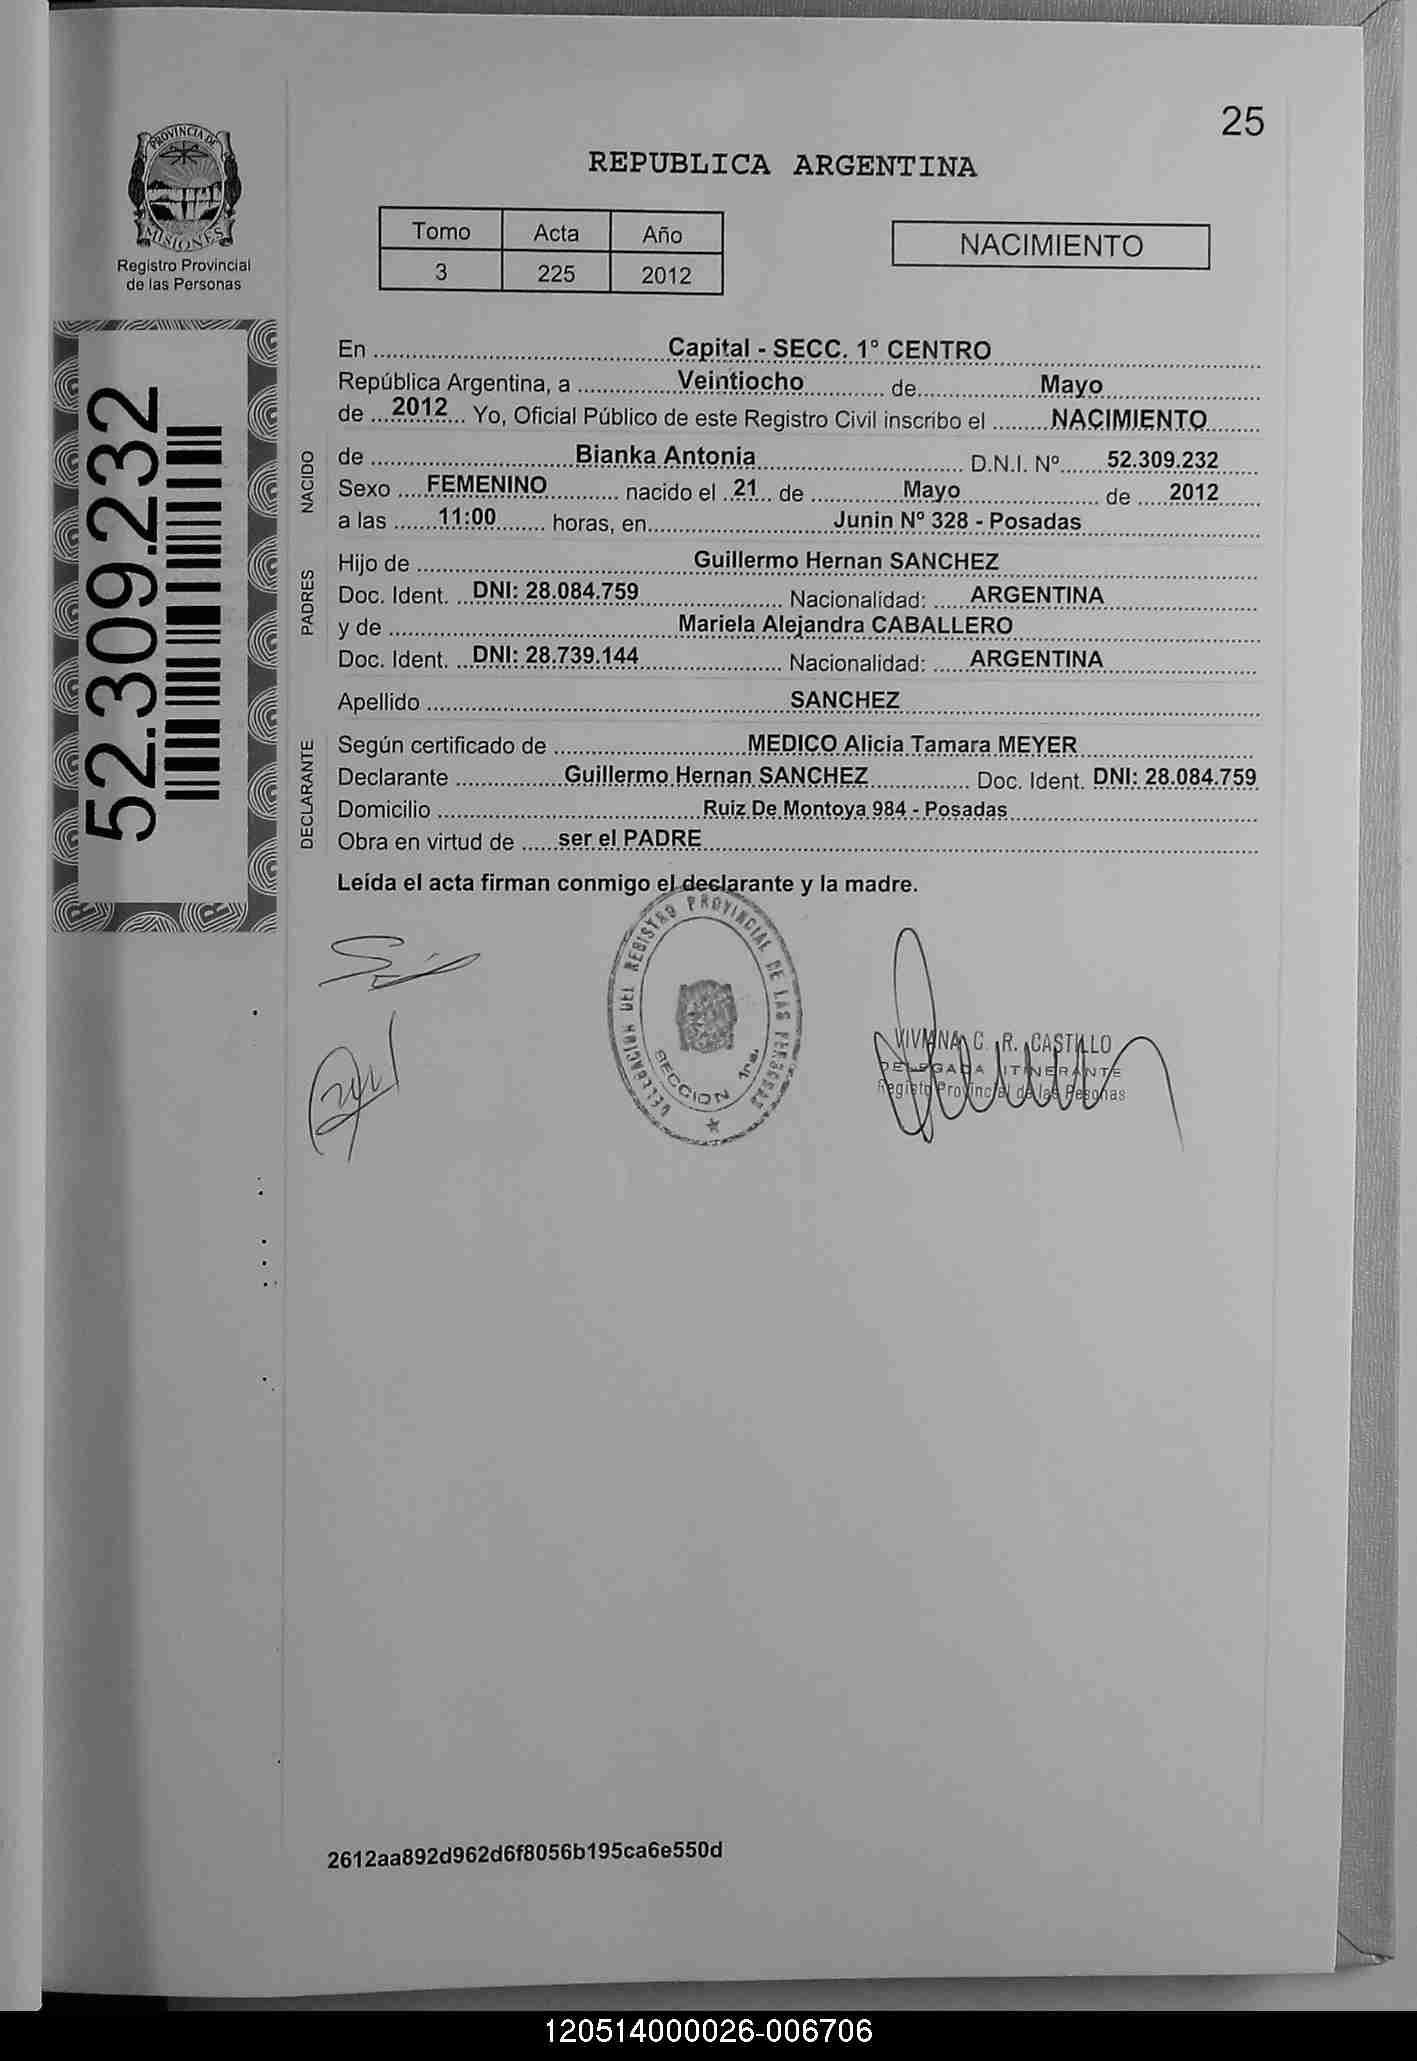 25
PROVINCIA DE
MISIONES
Registro Provincial
de las Personas
REPUBLICA ARGENTINA
Tomo Acta Año
3 225 2012
NACIMIENTO
52.309.232
En ........ Capital - SECC. 1° CENTRO ........
República Argentina, a ........ Veintiocho ........ de ........ Mayo ........
de ... 2012 ... Yo, Oficial Público de este Registro Civil inscribo el ........ NACIMIENTO ........
NACIDO
de ........ Bianka Antonia ........ D.N.I. Nº ...... 52.309.232 ......
Sexo .... FEMENINO ........ nacido el .. 21 .. de ........ Mayo ........ de ..... 2012 .....
a las ...... 11:00 ...... horas, en ........ Junin Nº 328 - Posadas ........
PADRES
Hijo de ........ Guillermo Hernan SANCHEZ ........
Doc. Ident. .. DNI: 28.084.759 ........ Nacionalidad: ..... ARGENTINA ........
y de ........ Mariela Alejandra CABALLERO ........
Doc. Ident. .. DNI: 28.739.144 ........ Nacionalidad: ..... ARGENTINA ........
Apellido ........ SANCHEZ ........
DECLARANTE
Según certificado de ........ MEDICO Alicia Tamara MEYER ........
Declarante ........ Guillermo Hernan SANCHEZ ........ Doc. Ident. DNI: 28.084.759
Domicilio ........ Ruiz De Montoya 984 - Posadas ........
Obra en virtud de ..... ser el PADRE ........
Leída el acta firman conmigo el declarante y la madre.
DELEGACION DEL REGISTRO PROVINCIAL DE LAS PERSONAS
SECCION 1ra.
VIVIANA C. R. CASTILLO
DELEGADA ITINERANTE
Registo Provincial de las Pesonas
2612aa892d962d6f8056b195ca6e550d
120514000026-006706